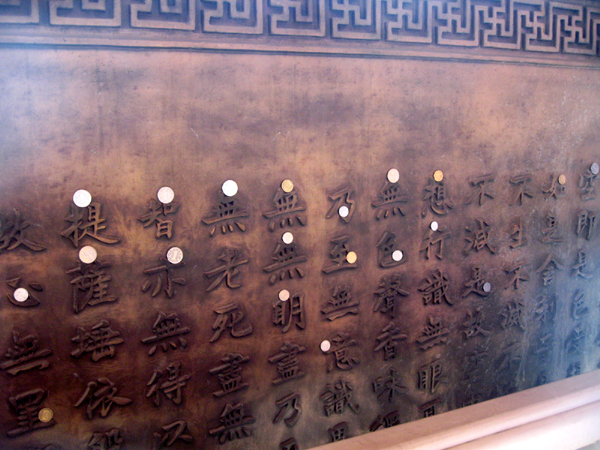 空即是色
如是舍利
不生不滅
不減是故
想行識無眼
無色聲香味
乃至無意識界
無無明盡乃
無老死盡無
智亦無得以
提薩埵依般
故心無罣